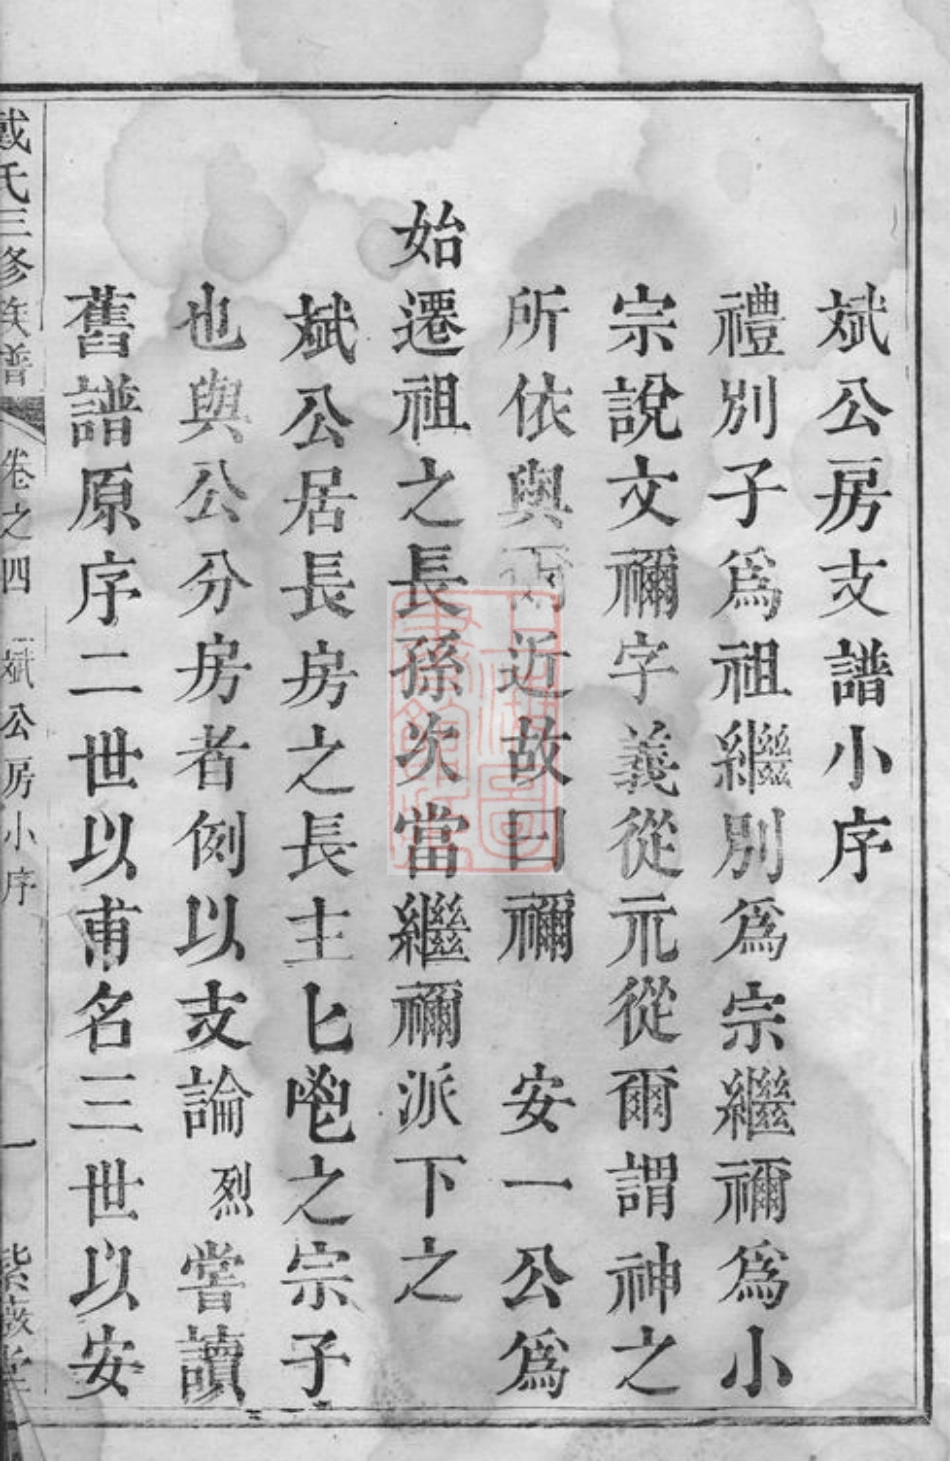 斌公房支譜小序
禮別子爲祖繼別爲宗繼禰爲小
宗說文禰字義從示從爾謂神之
所依與爾近故曰禰 安一公爲
始遷祖之長孫次當繼禰派下之
斌公居長房之長主匕鬯之宗子
也與公分房者例以支論 烈 嘗讀
舊譜原序二世以甫名三世以安
戴氏三修族譜 卷之四 斌公房小序 一 紫薇堂